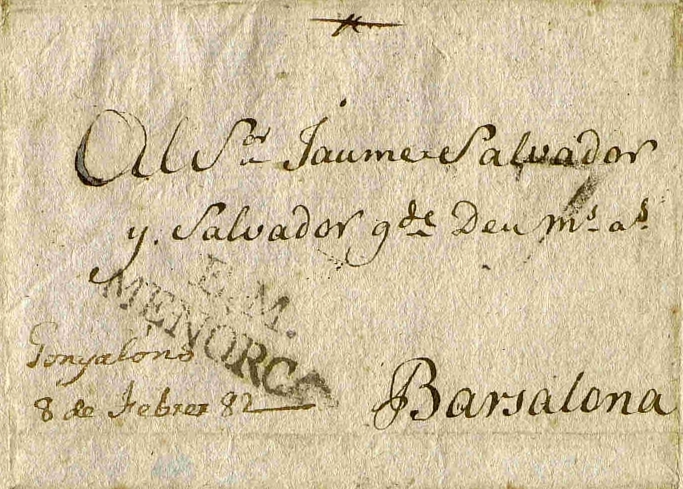 Al Sor Jaume Salvador
y. Salvador gde Deu ms as
E.M.
MENORCA
Gonyalóns
8 de Febrer 82
Barsalona